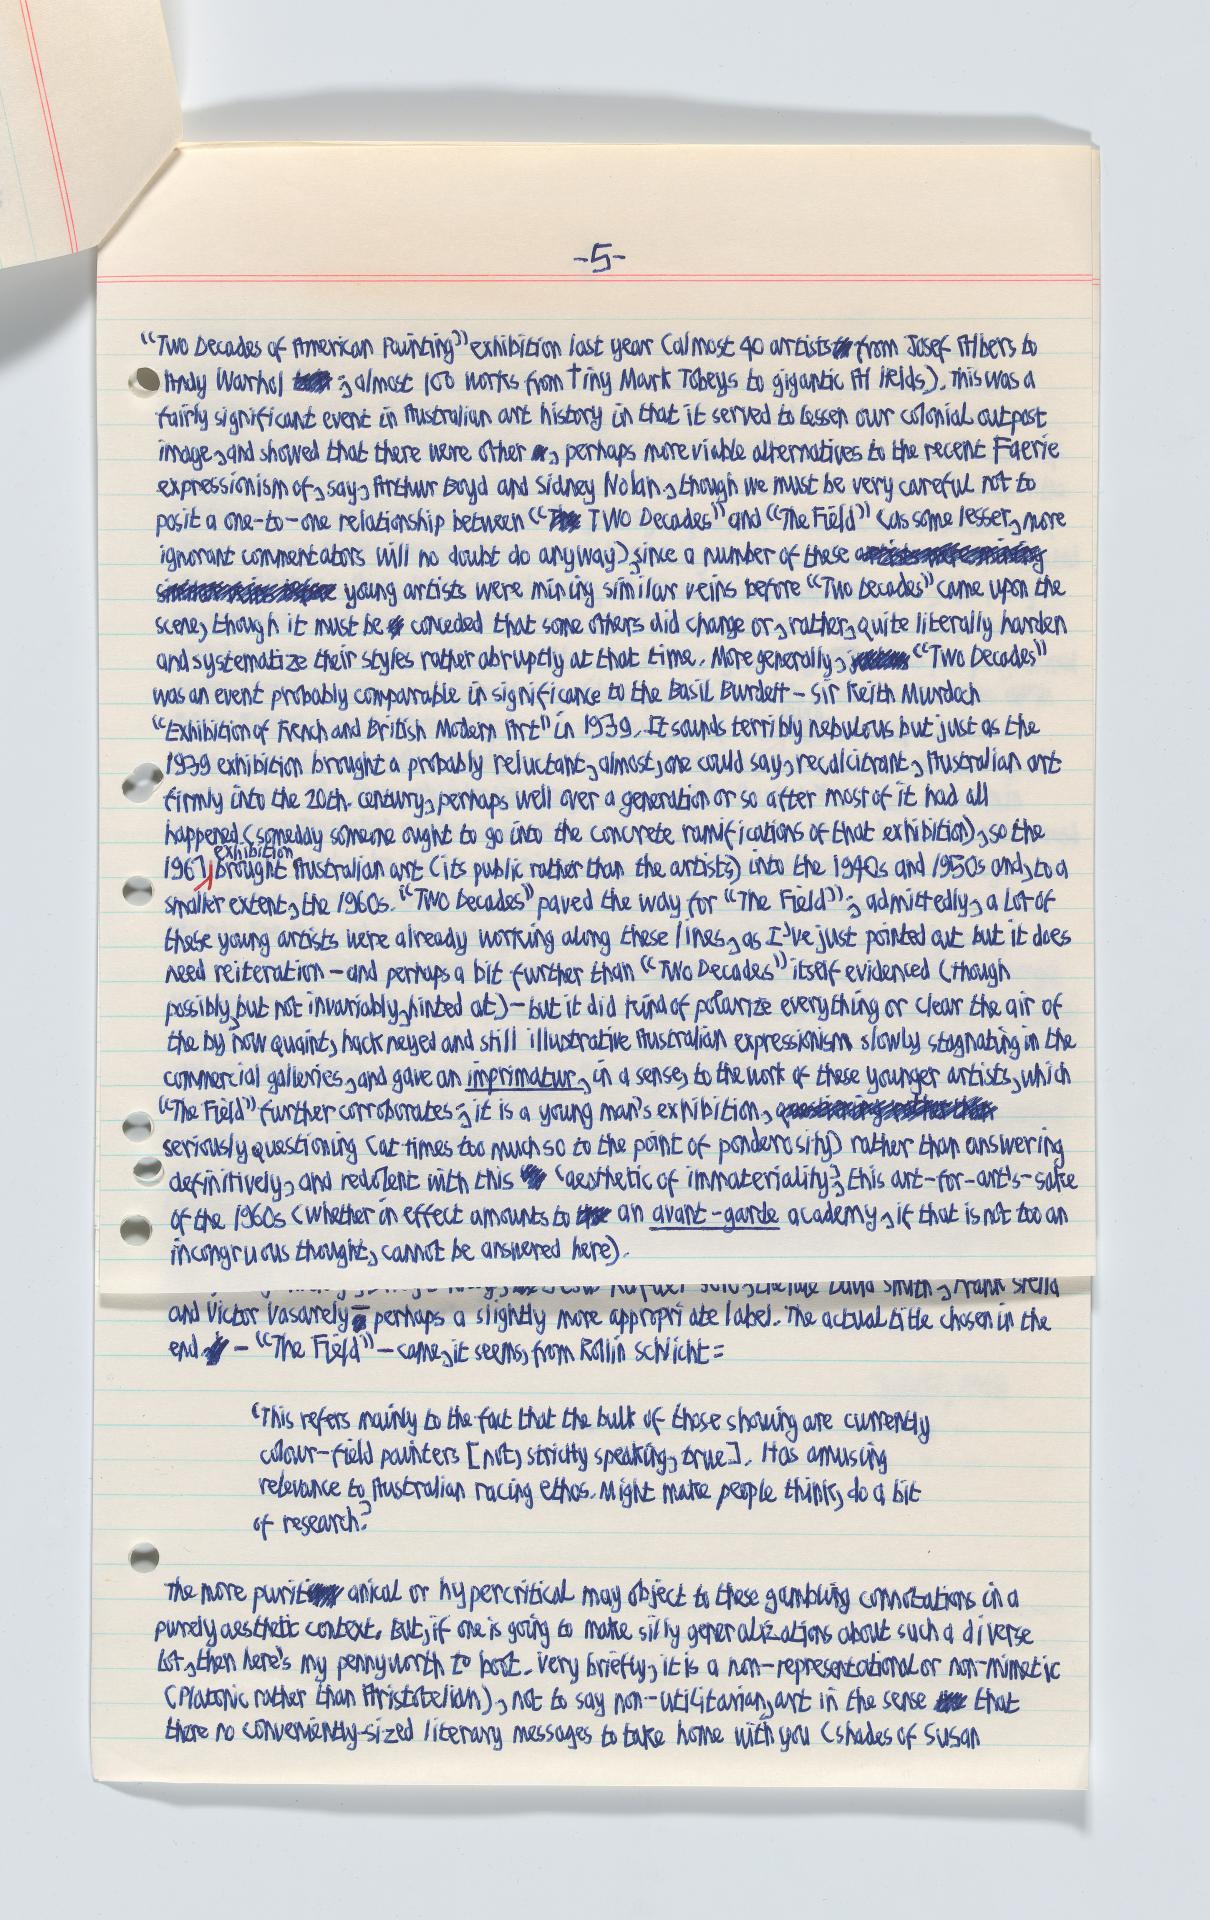 -5-
"Two Decades of American Painting" exhibition last year (almost 40 artists from Josef Albers to
Andy Warhol ; almost 100 works from tiny Mark Tobeys to gigantic Al Helds). This was a
fairly significant event in Australian art history in that it served to lessen our colonial outpost
image, and showed that there were other , perhaps more viable alternatives to the recent Faerie
expressionism of, say, Arthur Boyd and Sidney Nolan, though we must be very careful not to
posit a one-to-one relationship between "Two Decades" and "The Field" (as some lesser, more
ignorant commentators will no doubt do anyway), since a number of these
young artists were mining similar veins before "Two Decades" came upon the
scene, though it must be conceded that some others did change or, rather, quite literally harden
and systematize their styles rather abruptly at that time. More generally, "Two Decades"
was an event probably comparable in significance to the Basil Burdett - Sir Keith Murdoch
"Exhibition of French and British Modern Art" in 1939. It sounds terribly nebulous but just as the
1939 exhibition brought a probably reluctant, almost, one could say, recalcitrant, Australian art
firmly into the 20th. century, perhaps well over a generation or so after most of it had all
happened (someday someone ought to go into the concrete ramifications of that exhibition), so the
1967 exhibition brought Australian art (its public rather than the artists) into the 1940s and 1950s and, to a
smaller extent, the 1960s. "Two Decades" paved the way for "The Field"; admittedly, a lot of
these young artists were already working along these lines, as I've just pointed out but it does
need reiteration - and perhaps a bit further than "Two Decades" itself evidenced (though
possibly, but not invariably, hinted at) - but it did kind of polarize everything or clear the air of
the by now quaint, hackneyed and still illustrative Australian expressionism slowly stagnating in the
commercial galleries, and gave an imprimatur, in a sense, to the work of these younger artists, which
"The Field" further corroborates; it is a young man's exhibition,
seriously questioning (at times too much so to the point of ponderosity) rather than answering
definitively, and redolent with this 'aesthetic of immateriality', this art-for-art's-sake
of the 1960s (whether in effect amounts to an avant-garde academy, if that is not too an
incongruous thought, cannot be answered here).
David Smith, Frank Stella
and Victor Vasarely - perhaps a slightly more appropriate label. The actual title chosen in the
end - "The Field" - came, it seems, from Rollin Schlicht:
'This refers mainly to the fact that the bulk of those showing are currently
colour-field painters [not, strictly speaking, true]. Has amusing
relevance to Australian racing ethos. Might make people think, do a bit
of research.'
The more puritanical or hypercritical may object to these gambling connotations in a
purely aesthetic context. But, if one is going to make silly generalizations about such a diverse
lot, then here's my pennyworth to boot. Very briefly, it is a non-representational or non-mimetic
(Platonic rather than Aristotelian), not to say non-utilitarian, art in the sense that
there no conveniently-sized literary messages to take home with you (shades of Susan